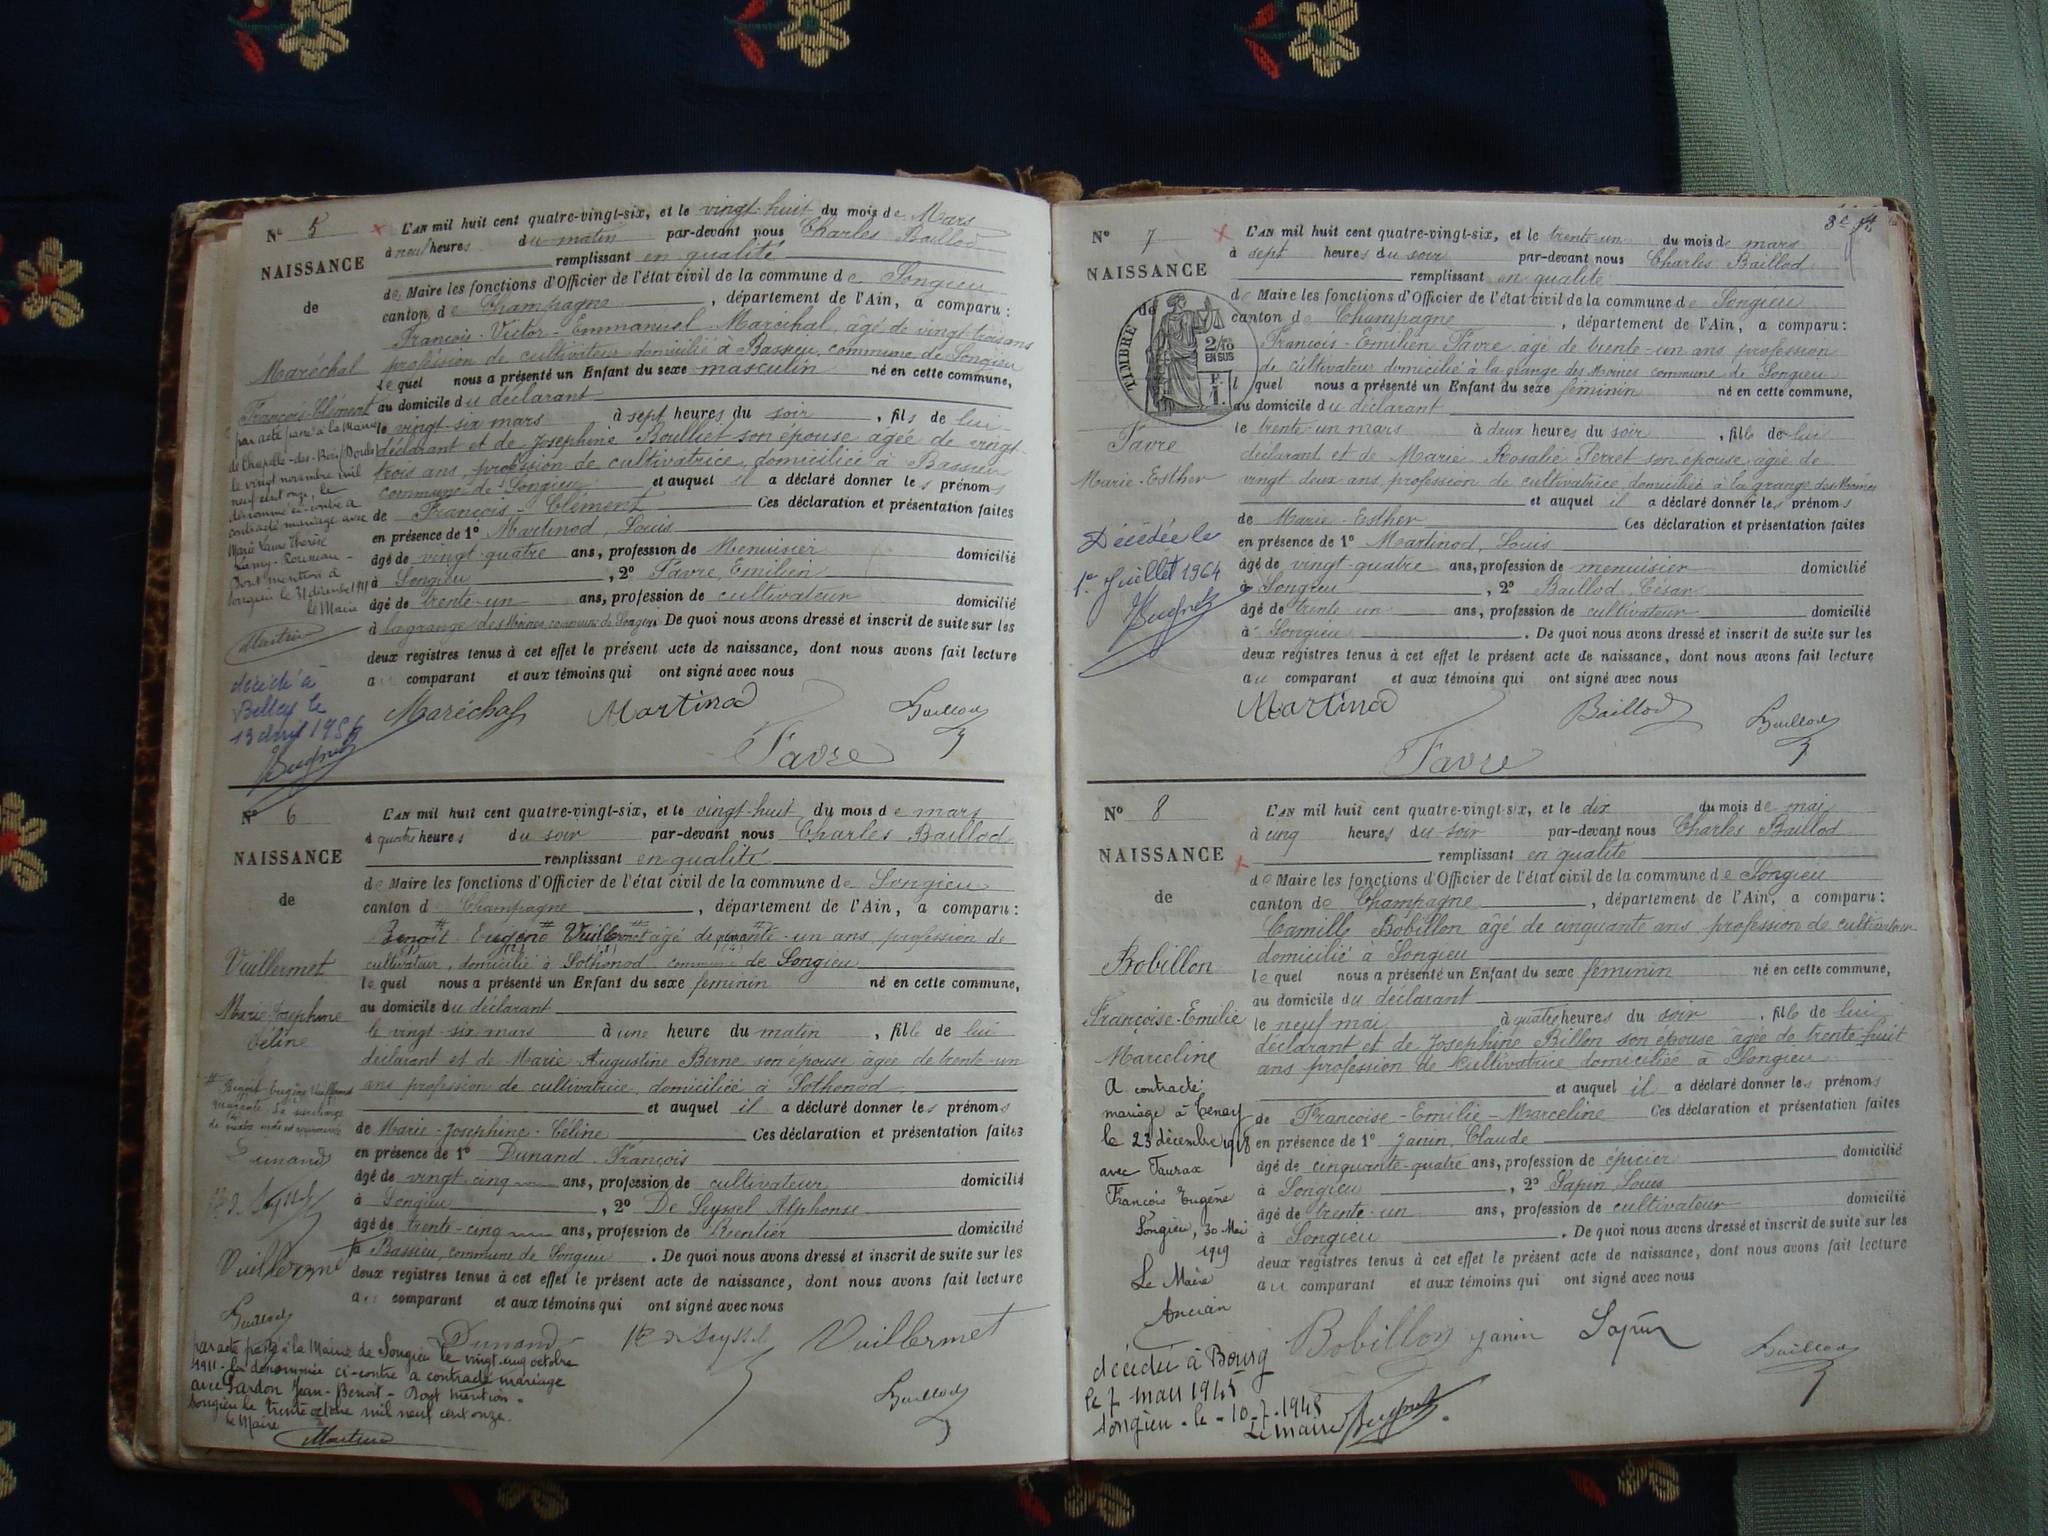 Nº 5
NAISSANCE
de
Maréchal
François-Clément
par acte passé à la Mairie
de Chapelle-des-Bois, Doubs
le vingt novembre mil
neuf cent onze, le
dénommé ci-contre a
contracté mariage avec
Marie Laure Thérèse
Dont mention à
Songieu le 31 décembre 1911
le Maire
décédé à
Belley le
13 avril 195
L'AN mil huit cent quatre-vingt-six, et le vingt-huit du mois de Mars
à neuf heures du matin par-devant nous Charles Baillod
remplissant en qualité
de Maire les fonctions d'Officier de l'état civil de la commune de Songieu
canton de Champagne, département de l'Ain, a comparu :
François-Victor-Emmanuel Maréchal, âgé de vingt-trois ans
profession de cultivateur domicilié à Bassieu, commune de Songieu
lequel nous a présenté un Enfant du sexe masculin né en cette commune,
au domicile du déclarant
le vingt-six mars à sept heures du soir, fils de lui
déclarant et de Joséphine Boulliet son épouse âgée de vingt-
trois ans, profession de cultivatrice, domiciliée à Bassieu
commune de Songieu et auquel il a déclaré donner les prénoms
de François-Clément Ces déclaration et présentation faites
en présence de 1º Martinod, Louis
âgé de vingt-quatre ans, profession de Menuisier domicilié
à Songieu, 2º Favre, Emilien
âgé de trente-un ans, profession de cultivateur domicilié
à la grange des Moines, commune de Songieu De quoi nous avons dressé et inscrit de suite sur les
deux registres tenus à cet effet le présent acte de naissance, dont nous avons fait lecture
au comparant et aux témoins qui ont signé avec nous
Maréchal Martinod Baillod
Favre
Nº 6
NAISSANCE
de
Vuillermet
Marie Joséphine
Céline
Dunand
Baillod
par acte passé à la Mairie de Songieu le vingt-cinq octobre
1911 - la dénommée ci-contre a contracté mariage
avec Gardon Jean-Benoit - Dont mention.
Songieu le trente octobre mil neuf cent onze.
le Maire
L'AN mil huit cent quatre-vingt-six, et le vingt-huit du mois de mars
à quatre heures du soir par-devant nous Charles Baillod
remplissant en qualité
de Maire les fonctions d'Officier de l'état civil de la commune de Songieu
canton de Champagne, département de l'Ain, a comparu :
Benoît Eugène Vuillermet âgé de quarante-un ans, profession de
cultivateur, domicilié à Sothonod commune de Songieu
lequel nous a présenté un Enfant du sexe féminin né en cette commune,
au domicile du déclarant
le vingt-six mars à une heure du matin, fille de lui
déclarant et de Marie Augustine Berne son épouse âgée de trente-un
ans profession de cultivatrice, domiciliée à Sothonod
et auquel il a déclaré donner les prénoms
de Marie-Joséphine-Céline Ces déclaration et présentation faites
en présence de 1º Dunand François
âgé de vingt-cinq ans, profession de cultivateur domicilié
à Songieu, 2º De Seyssel Alphonse
âgé de trente-cinq ans, profession de Rentier domicilié
à Bassieu, commune de Songieu. De quoi nous avons dressé et inscrit de suite sur les
deux registres tenus à cet effet le présent acte de naissance, dont nous avons fait lecture
au comparant et aux témoins qui ont signé avec nous
Dunand de Seyssel Vuillermet
Baillod
3e
Nº 7
NAISSANCE
de
TIMBRE
2/10
EN SUS
Favre
Marie-Esther
Décédée le
1er Juillet 1964
L'AN mil huit cent quatre-vingt-six, et le trente-un du mois de mars
à sept heures du soir par-devant nous Charles Baillod
remplissant en qualité
de Maire les fonctions d'Officier de l'état civil de la commune de Songieu
canton de Champagne, département de l'Ain, a comparu :
François-Emilien Favre âgé de trente-un ans profession
de cultivateur domicilié à la grange des Moines commune de Songieu
lequel nous a présenté un Enfant du sexe féminin né en cette commune,
au domicile du déclarant
le trente-un mars à deux heures du soir, fille de lui
déclarant et de Marie Rosalie Perret son épouse âgée de
vingt deux ans profession de cultivatrice domiciliée à la grange des Moines
et auquel il a déclaré donner les prénoms
de Marie-Esther Ces déclaration et présentation faites
en présence de 1º Martinod, Louis
âgé de vingt-quatre ans, profession de menuisier domicilié
à Songieu, 2º Baillod, César
âgé de trente-un ans, profession de cultivateur domicilié
à Songieu. De quoi nous avons dressé et inscrit de suite sur les
deux registres tenus à cet effet le présent acte de naissance, dont nous avons fait lecture
au comparant et aux témoins qui ont signé avec nous
Martinod Baillod Baillod
Favre
Nº 8
NAISSANCE
de
Bobillon
Françoise-Emilie
Marceline
A contracté
mariage à Tenay
le 23 décembre 1918
avec Taurax
François Eugène
Songieu, 30 Mai
1919
Le Maire
Ancian
décédée à Bourg
le 7 mars 1945
Songieu - le - 10-7-1945
Le maire
L'AN mil huit cent quatre-vingt-six, et le dix du mois de mai
à cinq heures du soir par-devant nous Charles Baillod
remplissant en qualité
de Maire les fonctions d'Officier de l'état civil de la commune de Songieu
canton de Champagne, département de l'Ain, a comparu :
Camille Bobillon âgé de cinquante ans profession de cultivateur
domicilié à Songieu
lequel nous a présenté un Enfant du sexe féminin né en cette commune,
au domicile du déclarant
le neuf mai à quatre heures du soir, fille de lui
déclarant et de Joséphine Billon son épouse âgée de trente-huit
ans profession de cultivatrice domiciliée à Songieu
et auquel il a déclaré donner les prénoms
de Françoise-Emilie-Marceline Ces déclaration et présentation faites
en présence de 1º Janin, Claude
âgé de cinquante-quatre ans, profession de épicier domicilié
à Songieu, 2º Sapin, Louis
âgé de trente-un ans, profession de cultivateur domicilié
à Songieu. De quoi nous avons dressé et inscrit de suite sur les
deux registres tenus à cet effet le présent acte de naissance, dont nous avons fait lecture
au comparant et aux témoins qui ont signé avec nous
Bobillon Janin Sapin Baillod